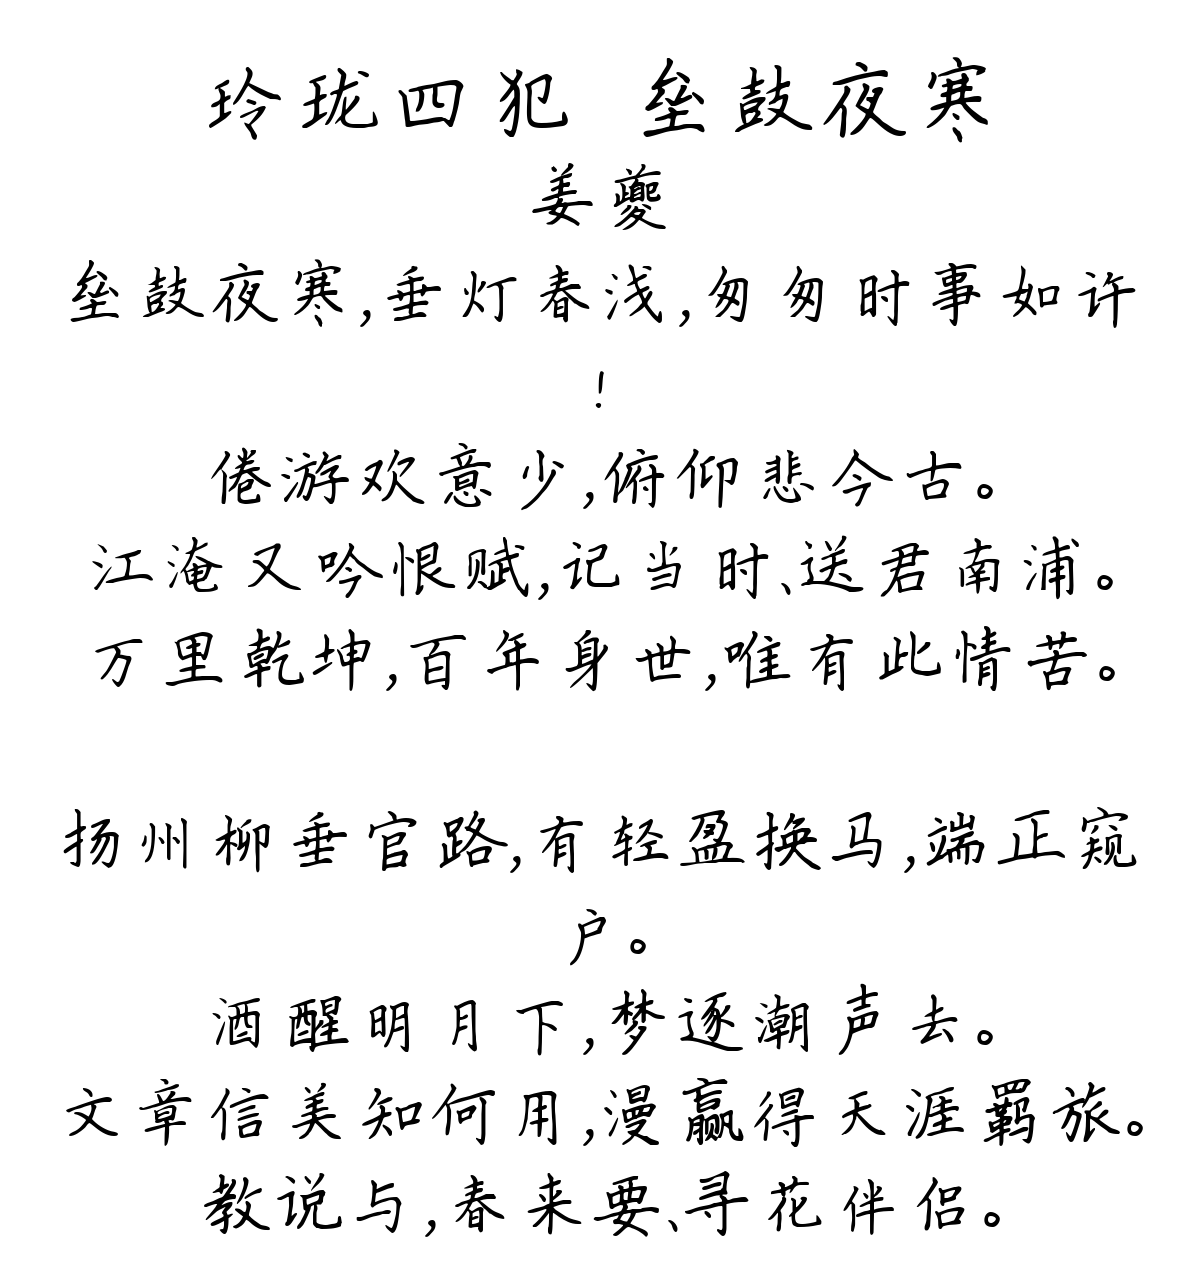 玲珑四犯 垒鼓夜寒
姜夔
垒鼓夜寒,垂灯春浅,匆匆时事如许
!
倦游欢意少,俯仰悲今古。
江淹又吟恨赋,记当时、送君南浦。
万里乾坤,百年身世,唯有此情苦。
扬州柳垂官路,有轻盈换马,端正窥
户。
酒醒明月下,梦逐潮声去。
文章信美知何用,漫赢得天涯羁旅。
教说与,春来要、寻花伴侣。